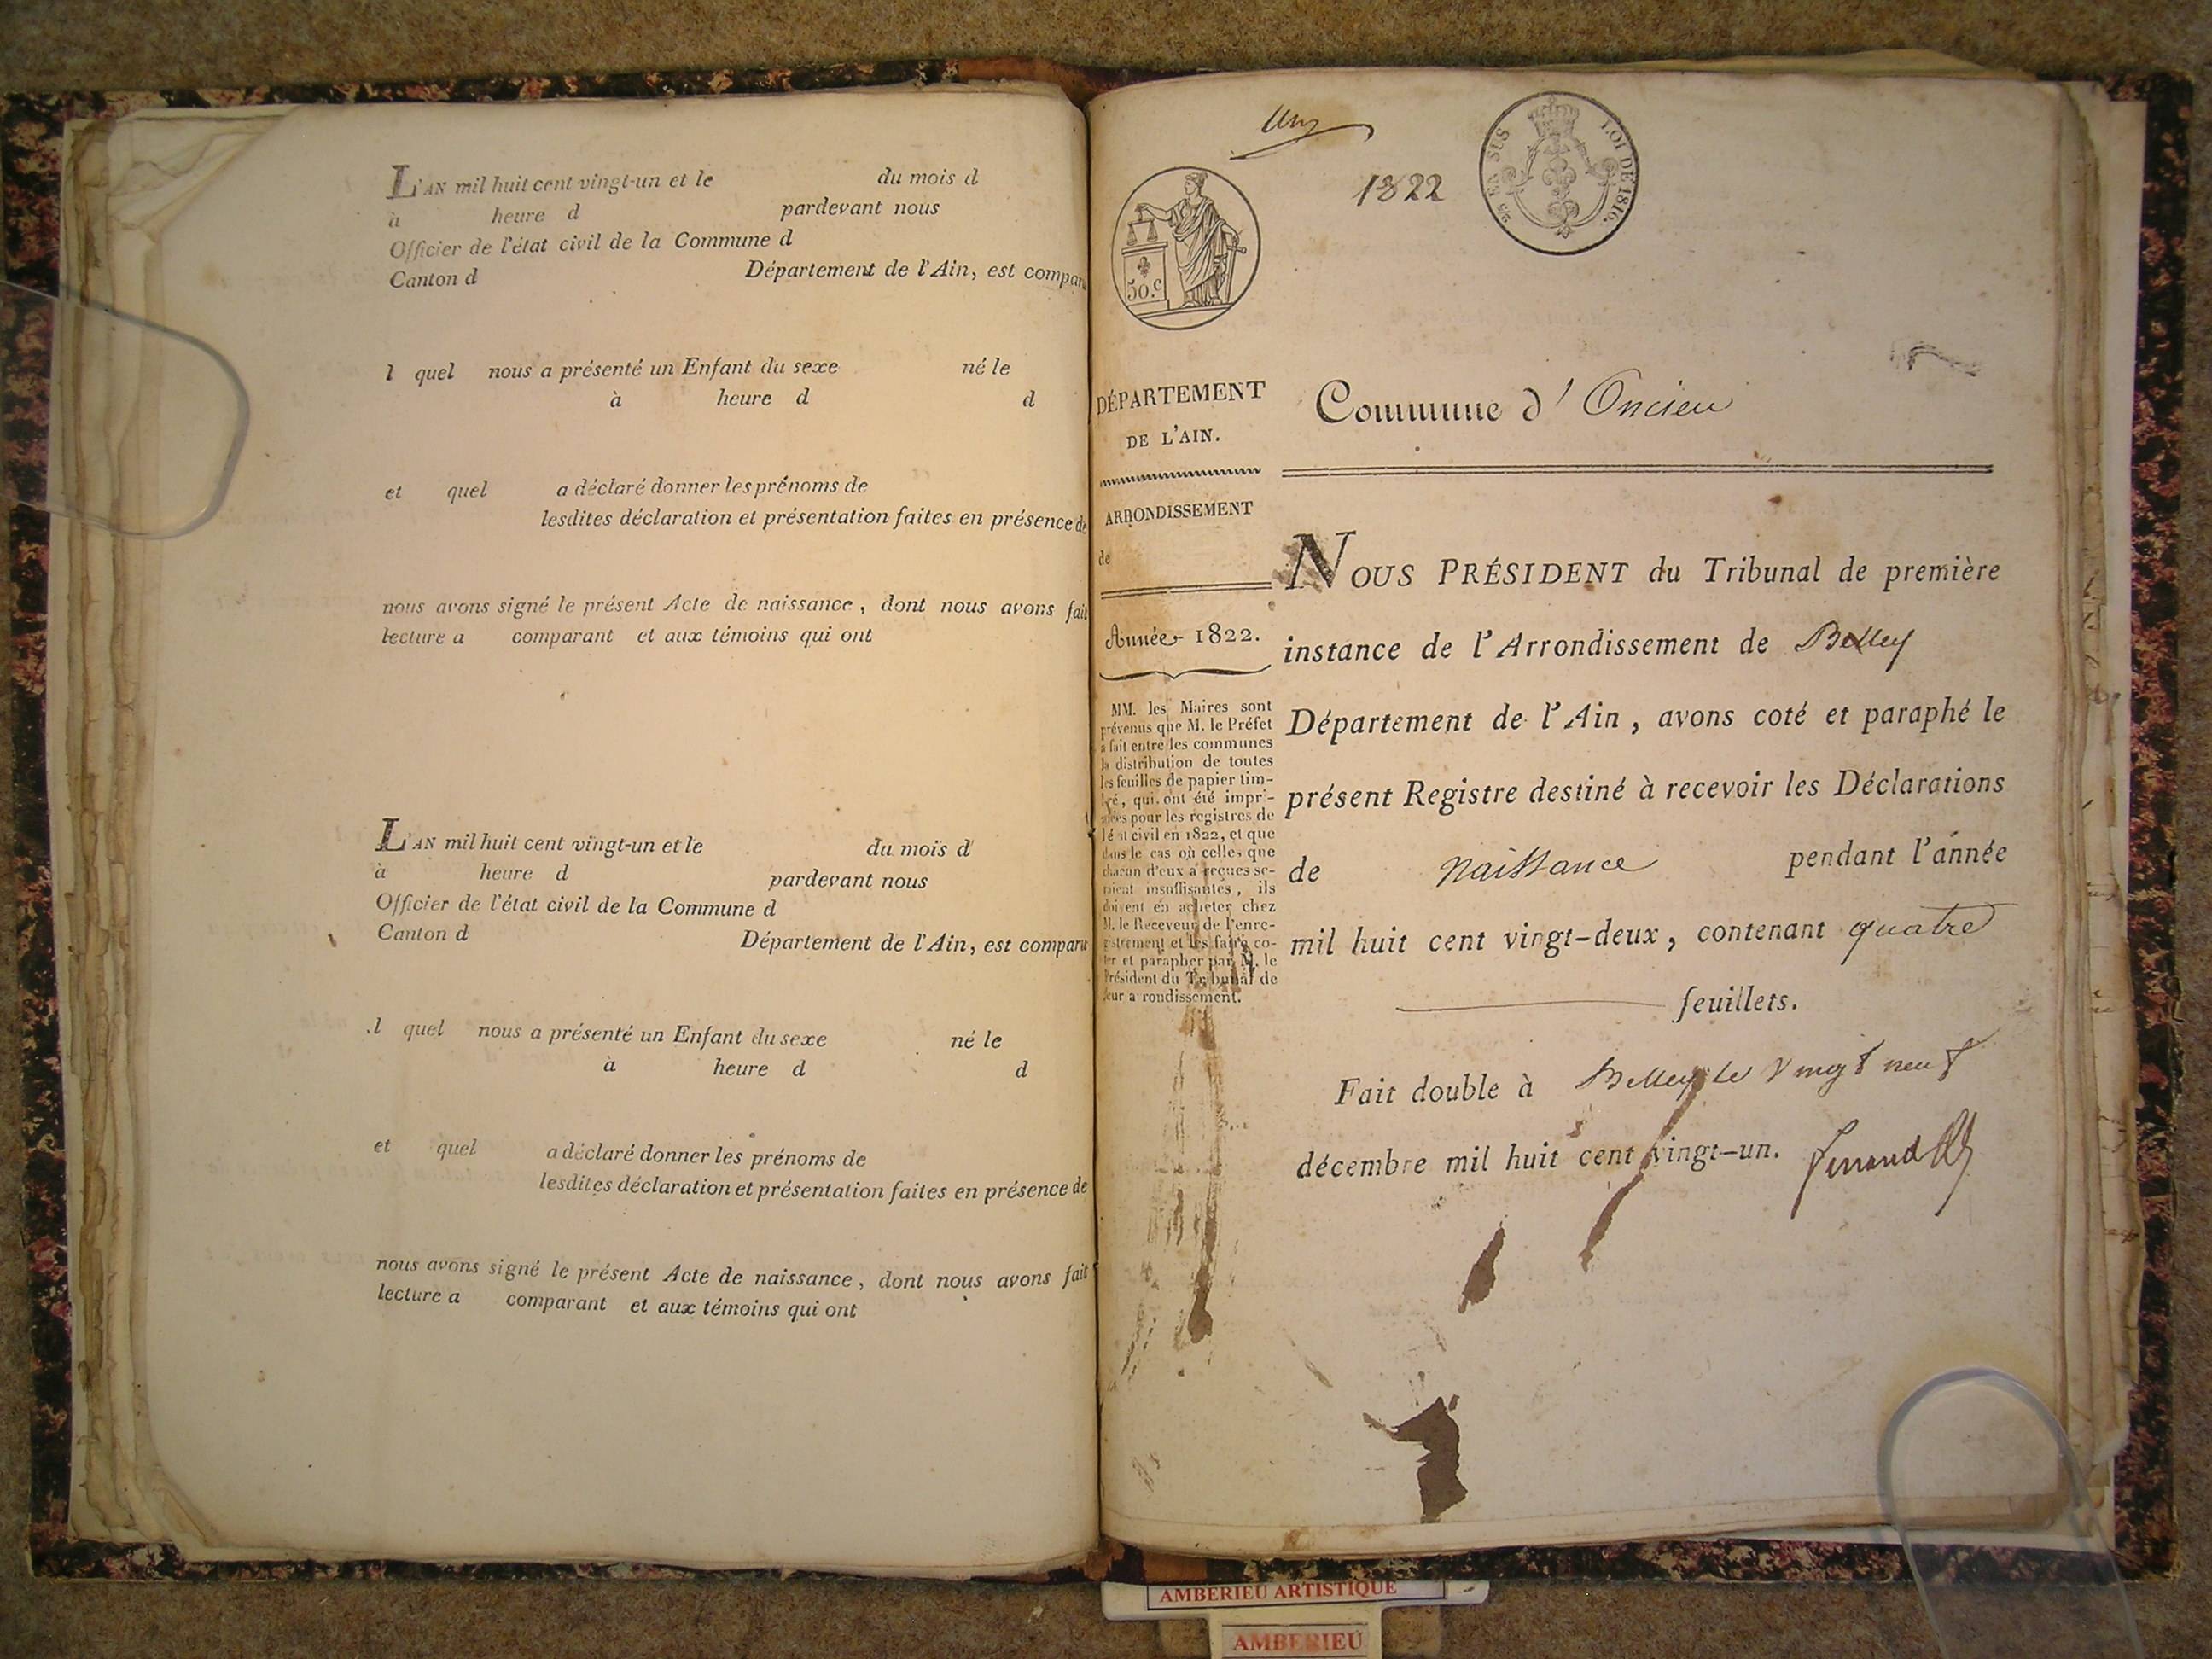 L'AN mil huit cent vingt-un et le du mois d
à heure d pardevant nous
Officier de l'état civil de la Commune d
Canton d Département de l'Ain, est comparu
l quel nous a présenté un Enfant du sexe né le
à heure d d
et quel a déclaré donner les prénoms de
lesdites déclaration et présentation faites en présence de
nous avons signé le présent Acte de naissance, dont nous avons fait
lecture a comparant et aux témoins qui ont
L'AN mil huit cent vingt-un et le du mois d
à heure d pardevant nous
Officier de l'état civil de la Commune d
Canton d Département de l'Ain, est comparu
l quel nous a présenté un Enfant du sexe né le
à heure d d
et quel a déclaré donner les prénoms de
lesdites déclaration et présentation faites en présence de
nous avons signé le présent Acte de naissance, dont nous avons fait
lecture a comparant et aux témoins qui ont
Un
1822
25 EN SUS
LOI DE 1816.
50.c
DÉPARTEMENT
DE L'AIN.
ARRONDISSEMENT
de
Année 1822.
MM. les Maires sont
prévenus que M. le Préfet
a fait entre les communes
la distribution de toutes
les feuilles de papier tim-
bré, qui ont été impri-
mées pour les registres de
l'état civil en 1822, et que
dans le cas où celles que
chacun d'eux a reçues se-
raient insuffisantes, ils
doivent en acheter chez
M. le Receveur de l'enre-
gistrement et les faire co-
ter et parapher par M. le
Président du Tribunal de
leur arrondissement.
Commune d'Oncieu
NOUS PRÉSIDENT du Tribunal de première
instance de l'Arrondissement de Belley
Département de l'Ain, avons coté et paraphé le
présent Registre destiné à recevoir les Déclarations
de naissance pendant l'année
mil huit cent vingt-deux, contenant quatre
feuillets.
Fait double à Belley le vingt neuf
décembre mil huit cent vingt-un.
AMBERIEU ARTISTIQUE
AMBERIEU